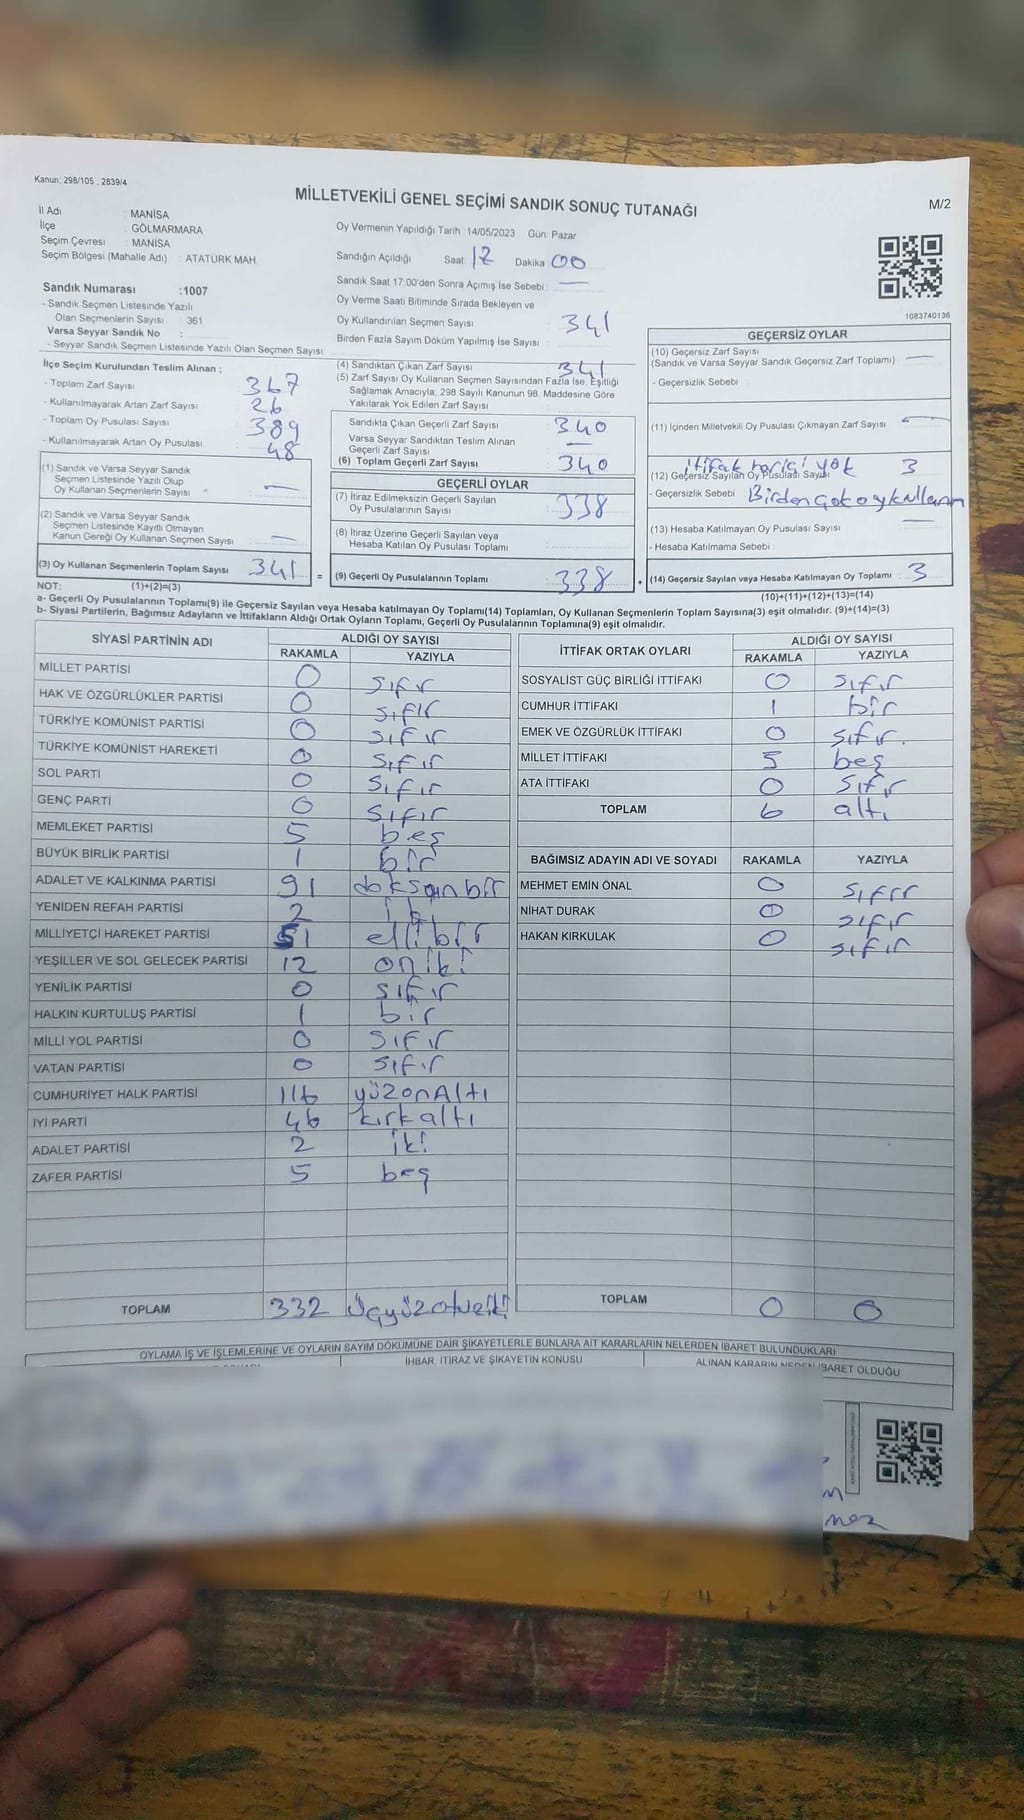 Kanun; 298/105 , 2839/4
MİLLETVEKİLİ GENEL SEÇİMİ SANDIK SONUÇ TUTANAĞI
M/2
İl Adı : MANİSA
İlçe : GÖLMARMARA
Seçim Çevresi : MANİSA
Seçim Bölgesi (Mahalle Adı) : ATATÜRK MAH.
Oy Vermenin Yapıldığı Tarih :14/05/2023 Gün: Pazar
Sandığın Açıldığı Saat: 17 Dakika 00
Sandık Saat 17:00'den Sonra Açımış İse Sebebi : —
Oy Verme Saati Bitiminde Sırada Bekleyen ve
Oy Kullandırılan Seçmen Sayısı 341
Birden Fazla Sayım Döküm Yapılmış İse Sayısı
1083740136
Sandık Numarası :1007
- Sandık Seçmen Listesinde Yazılı
Olan Seçmenlerin Sayısı : 361
Varsa Seyyar Sandık No :
- Seyyar Sandık Seçmen Listesinde Yazılı Olan Seçmen Sayısı
İlçe Seçim Kurulundan Teslim Alınan ;
- Toplam Zarf Sayısı 367
- Kullanılmayarak Artan Zarf Sayısı 26
- Toplam Oy Pusulası Sayısı 389
- Kullanılmayarak Artan Oy Pusulası 48
(1) Sandık ve Varsa Seyyar Sandık
Seçmen Listesinde Yazılı Olup
Oy Kullanan Seçmenlerin Sayısı —
(2) Sandık ve Varsa Seyyar Sandık
Seçmen Listesinde Kayıtlı Olmayan
Kanun Gereği Oy Kullanan Seçmen Sayısı —
(3) Oy Kullanan Seçmenlerin Toplam Sayısı 341 =
(4) Sandıktan Çıkan Zarf Sayısı 341
(5) Zarf Sayısı Oy Kullanan Seçmen Sayısından Fazla İse, Eşitliği
Sağlamak Amacıyla, 298 Sayılı Kanunun 98. Maddesine Göre
Yakılarak Yok Edilen Zarf Sayısı
Sandıkta Çıkan Geçerli Zarf Sayısı 340
Varsa Seyyar Sandıktan Teslim Alınan
Geçerli Zarf Sayısı —
(6) Toplam Geçerli Zarf Sayısı 340
GEÇERLİ OYLAR
(7) İtiraz Edilmeksizin Geçerli Sayılan
Oy Pusulalarının Sayısı 338
(8) İtiraz Üzerine Geçerli Sayılan veya
Hesaba Katılan Oy Pusulası Toplamı
(9) Geçerli Oy Pusulalarının Toplamı 338 +
GEÇERSİZ OYLAR
(10) Geçersiz Zarf Sayısı
(Sandık ve Varsa Seyyar Sandık Geçersiz Zarf Toplamı) —
- Geçersizlik Sebebi :
(11) İçinden Milletvekili Oy Pusulası Çıkmayan Zarf Sayısı —
ittifak harici yok 3
(12) Geçersiz Sayılan Oy Pusulası Sayısı
- Geçersizlik Sebebi : Birden çok oy kullanım
(13) Hesaba Katılmayan Oy Pusulası Sayısı —
- Hesaba Katılmama Sebebi :
(14) Geçersiz Sayılan veya Hesaba Katılmayan Oy Toplamı 3
NOT: (1)+(2)=(3) (10)+(11)+(12)+(13)=(14)
a- Geçerli Oy Pusulalarının Toplamı(9) ile Geçersiz Sayılan veya Hesaba katılmayan Oy Toplamı(14) Toplamları, Oy Kullanan Seçmenlerin Toplam Sayısına(3) eşit olmalıdır. (9)+(14)=(3)
b- Siyasi Partilerin, Bağımsız Adayların ve İttifakların Aldığı Ortak Oyların Toplamı, Geçerli Oy Pusulalarının Toplamına(9) eşit olmalıdır.
SİYASİ PARTİNİN ADI ALDIĞI OY SAYISI
RAKAMLA YAZIYLA
MİLLET PARTİSİ 0 sıfır
HAK VE ÖZGÜRLÜKLER PARTİSİ 0 sıfır
TÜRKİYE KOMÜNİST PARTİSİ 0 sıfır
TÜRKİYE KOMÜNİST HAREKETİ 0 sıfır
SOL PARTİ 0 sıfır
GENÇ PARTİ 0 sıfır
MEMLEKET PARTİSİ 5 beş
BÜYÜK BİRLİK PARTİSİ 1 bir
ADALET VE KALKINMA PARTİSİ 91 doksanbir
YENİDEN REFAH PARTİSİ 2 iki
MİLLİYETÇİ HAREKET PARTİSİ 51 ellibir
YEŞİLLER VE SOL GELECEK PARTİSİ 12 oniki
YENİLİK PARTİSİ 0 sıfır
HALKIN KURTULUŞ PARTİSİ 1 bir
MİLLİ YOL PARTİSİ 0 sıfır
VATAN PARTİSİ 0 sıfır
CUMHURİYET HALK PARTİSİ 116 yüzonAltı
İYİ PARTİ 46 kırkaltı
ADALET PARTİSİ 2 iki
ZAFER PARTİSİ 5 beş
TOPLAM 332 üçyüzotuziki
İTTİFAK ORTAK OYLARI ALDIĞI OY SAYISI
RAKAMLA YAZIYLA
SOSYALİST GÜÇ BİRLİĞİ İTTİFAKI 0 sıfır
CUMHUR İTTİFAKI 1 bir
EMEK VE ÖZGÜRLÜK İTTİFAKI 0 sıfır.
MİLLET İTTİFAKI 5 beş
ATA İTTİFAKI 0 sıfır
TOPLAM 6 altı
BAĞIMSIZ ADAYIN ADI VE SOYADI RAKAMLA YAZIYLA
MEHMET EMİN ÖNAL 0 sıfır
NİHAT DURAK 0 sıfır
HAKAN KIRKULAK 0 sıfır
TOPLAM 0 0
OYLAMA İŞ VE İŞLEMLERİNE VE OYLARIN SAYIM DÖKÜMÜNE DAİR ŞİKAYETLERLE BUNLARA AİT KARARLARIN NELERDEN İBARET BULUNDUKLARI
İHBAR, İTİRAZ VE ŞİKAYETİN KONUSU ALINAN KARARIN NEDEN İBARET OLDUĞU